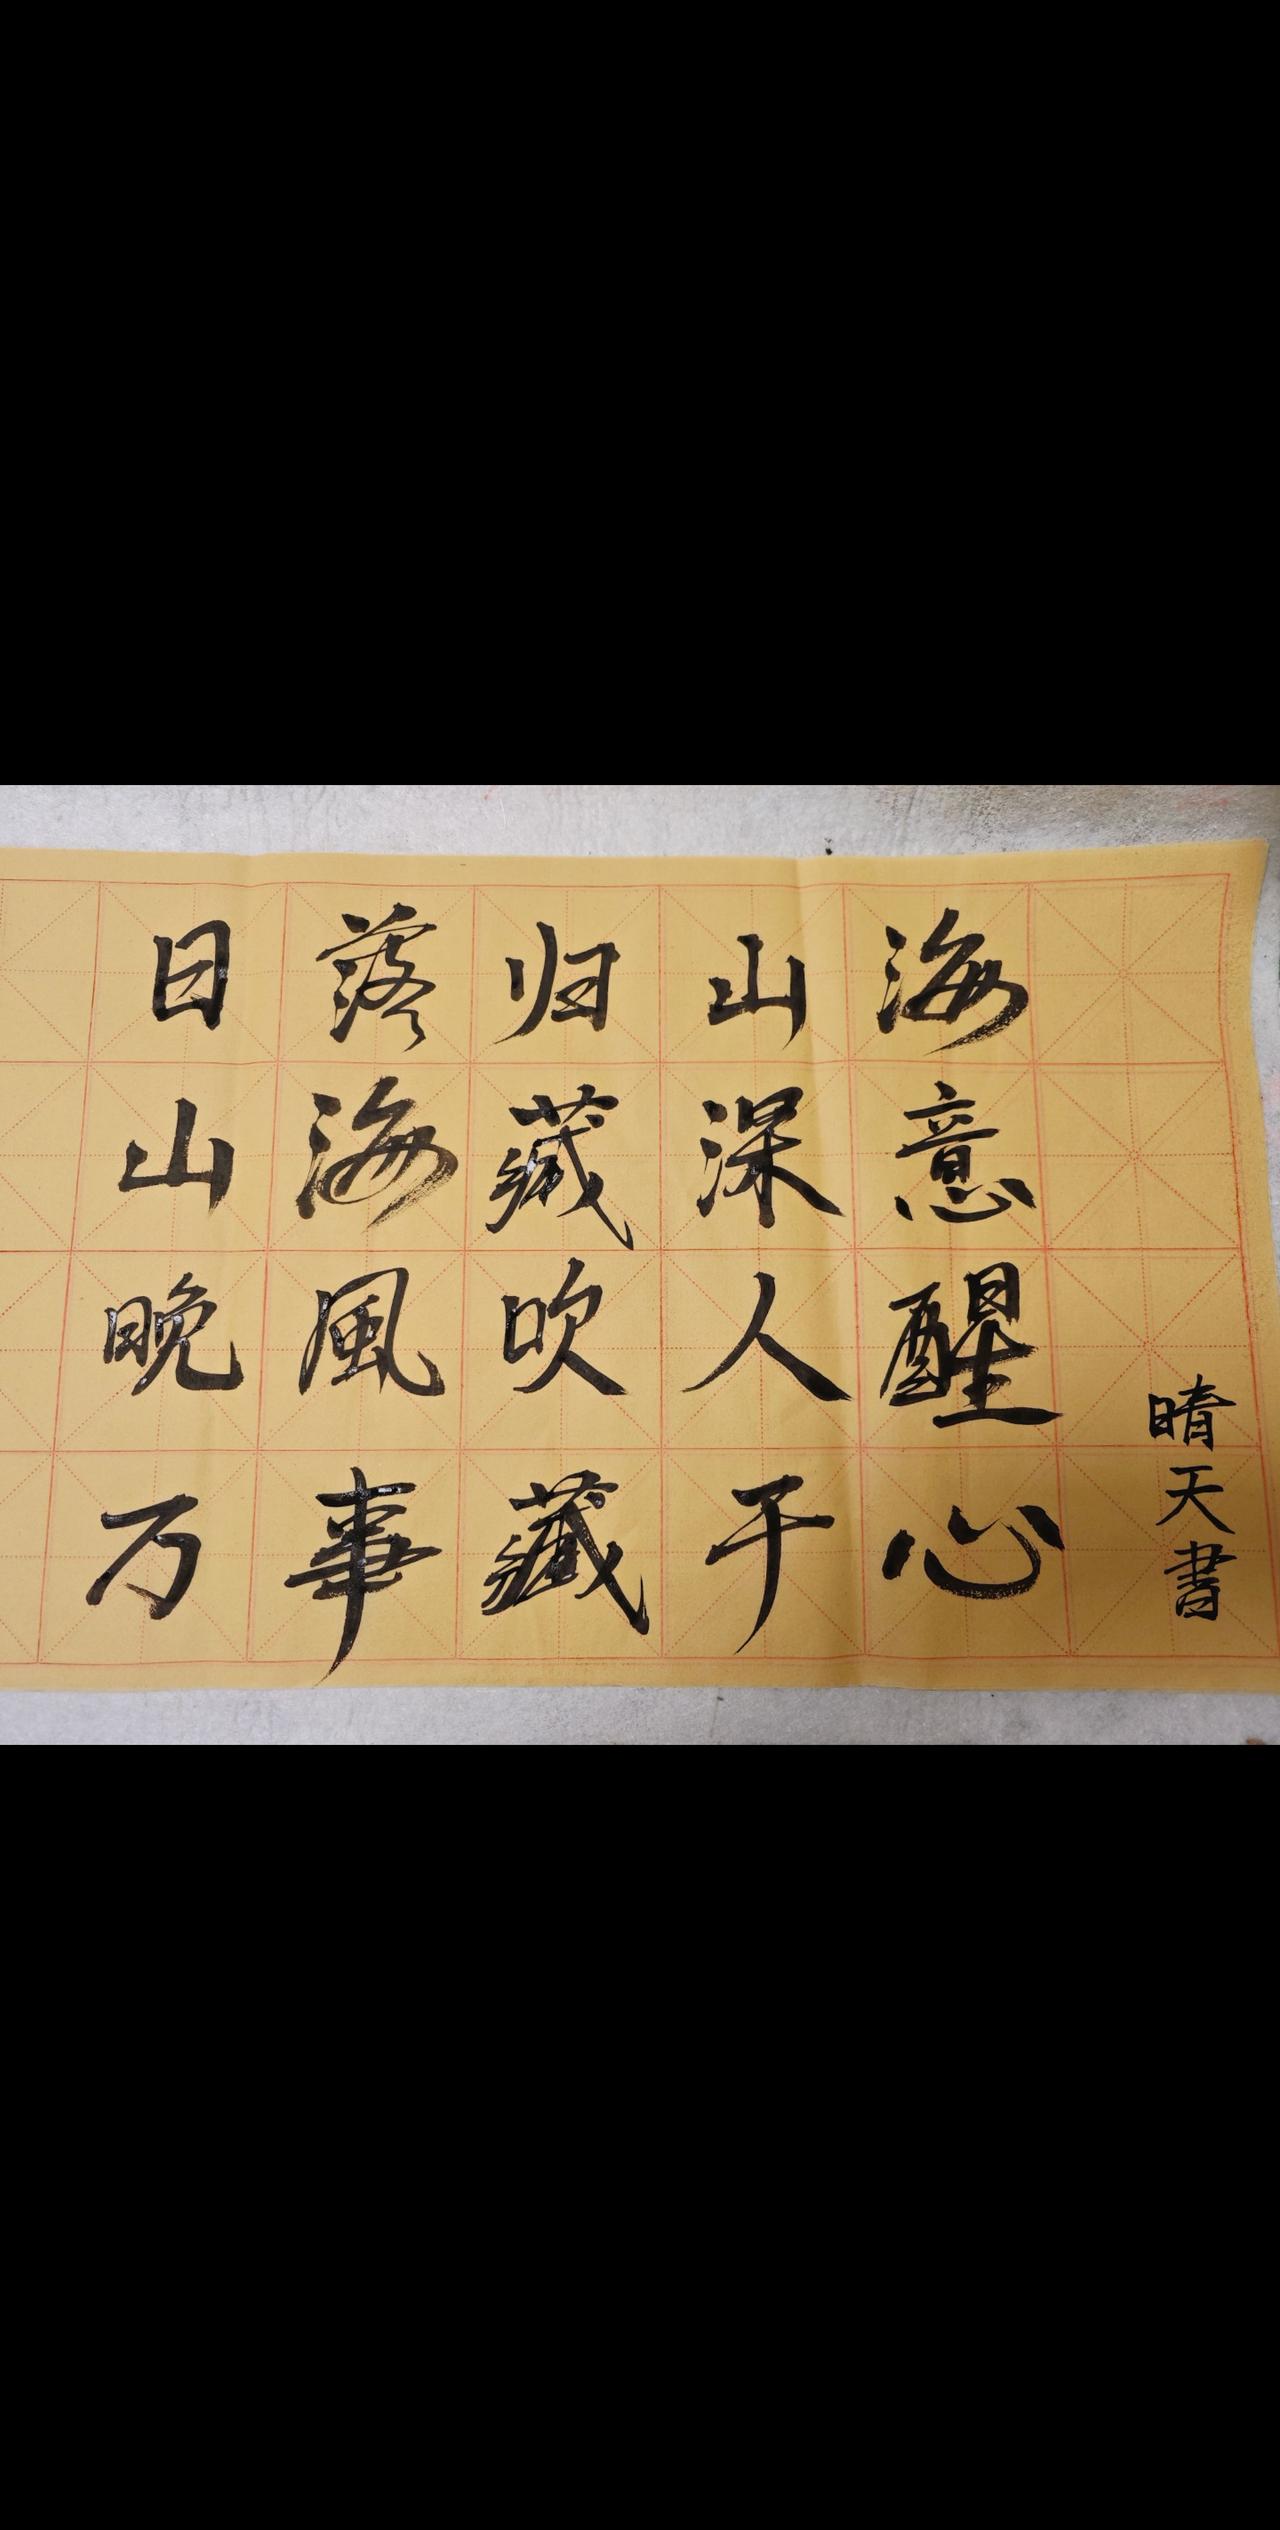 日落归山海
山海藏深意
晚風吹人醒
万事藏于心
晴天書